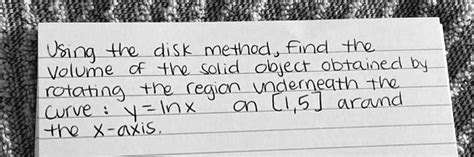 Using the disk method, find the
volume of the solid object obtained by
rotating the region underneath the
curve : y=lnx on [1,5] around
the x-axis.